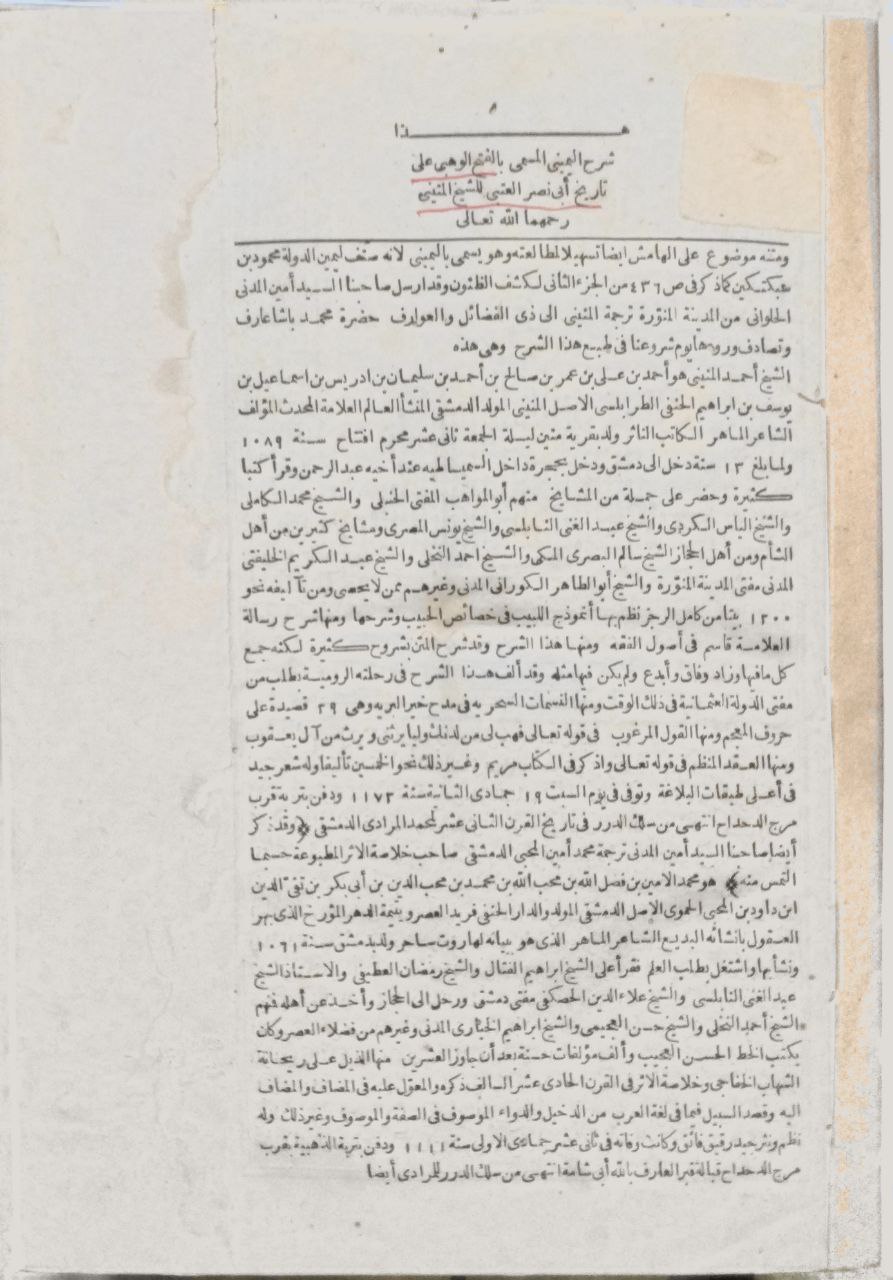 هـــــذا
شرح اليمينى المسمى بالفتح الوهبى على
تاريخ أبى نصر العتبى للشيخ المنينى
رحمهما الله تعالى
ومتنه موضوع على الهامش ايضا تسهيلا لمطالعته وهو يسمى باليمينى لانه صنف ليمين الدولة محمود بن
سبكتكين كما ذكر فى ص ٤٣٦ من الجزء الثانى لكشف الظنون وقد ارسل صاحبنا السيد أمين المدنى
الحلوانى من المدينة المنورة ترجمة المنينى الى ذى الفضائل والعوارف حضرة محمد باشا عارف
وتصادف ورودها يوم شروعنا فى طبع هذا الشرح وهى هذه
الشيخ أحمد المنينى هو أحمد بن على بن عمر بن صالح بن أحمد بن سليمان بن ادريس بن اسماعيل بن
يوسف بن ابراهيم الحنفى الطرابلسى الاصل المنينى المولد الدمشقى المنشأ العالم العلامة المحدث المؤلف
الشاعر الماهر الكاتب الناثر ولد بقرية منين ليلة الجمعة ثانى عشر محرم افتتاح سنة ١٠٨٩
ولما بلغ ١٣ سنة دخل الى دمشق ودخل بحجرة داخل السميساطيه عند أخيه عبد الرحمن وقرأ كتبا
كثيرة وحضر على جملة من المشايخ منهم أبو المواهب المفتى الحنبلى والشيخ محمد الكاملى
والشيخ الياس الكردى والشيخ عبد الغنى النابلسى والشيخ يونس المصرى ومشايخ كثيرين من أهل
الشأم ومن أهل الحجاز الشيخ سالم البصرى المكى والشيخ احمد النخلى والشيخ عبد الكريم الخليفتى
المدنى مفتى المدينة المنورة والشيخ أبو الطاهر الكورانى المدنى وغيرهم ممن لا يحصى ومن تآليفه نحو
١٢٠٠ بيتا من كامل الرجز نظم بها أنموذج اللبيب فى خصائص الحبيب وشرحها ومنها شرح رسالة
العلامة قاسم فى أصول الفقه ومنها هذا الشرح وقد شرح المتن بشروح كثيرة لكنه جمع
كل ما فيها وزاد وفاق وأبدع ولم يكن فيها مثله وقد ألف هذا الشرح فى رحلته الرومية بطلب من
مفتى الدولة العثمانية فى ذلك الوقت ومنها النسمات السحريه فى مدح خير البريه وهى ٢٩ قصيدة على
حروف المعجم ومنها القول المرغوب فى قوله تعالى فهب لى من لدنك وليا يرثنى ويرث من آل يعقوب
ومنها العقد المنظم فى قوله تعالى واذكر فى الكتاب مريم وغير ذلك نحو الخمسين تأليفا وله شعر جيد
فى أعلى طبقات البلاغة وتوفى فى يوم السبت ١٩ جمادى الثانية سنة ١١٧٢ ودفن بتربة قرب
مرج الدحداح انتهى من سلك الدرر فى تاريخ القرن الثانى عشر لمحمد المرادى الدمشقى ﴿وقد ذكر
أيضا صاحبنا السيد أمين المدنى ترجمة محمد أمين المحبى الدمشقى صاحب خلاصة الاثر المطبوعة حسبما
التمس منه﴾ هو محمد الامين بن فضل الله بن محب الله بن محمد بن محب الدين بن أبى بكر بن تقى الدين
ابن داود بن المحبى الحموى الاصل الدمشقى المولد والدار الحنفى فريد العصر ويتيمة الدهر المؤرخ الذى بهر
العقول بانشائه البديع الشاعر الماهر الذى هو ببيانه لهاروت ساحر ولد بدمشق سنة ١٠٦١
ونشأ بها واشتغل بطلب العلم فقرأ على الشيخ ابراهيم الفتال والشيخ رمضان العطيفى والاستاذ الشيخ
عبد الغنى النابلسى والشيخ علاء الدين الحصكفى مفتى دمشق ورحل الى الحجاز وأخذ عن أهله فمنهم
الشيخ أحمد النخلى والشيخ حسن العجيمى والشيخ ابراهيم الخيارى المدنى وغيرهم من فضلاء العصر وكان
يكتب الخط الحسن العجيب وألف مؤلفات حسنة بعد أن جاوز العشرين منها الذيل على ريحانة
الشهاب الخفاجى وخلاصة الاثر فى القرن الحادى عشر السالف ذكره والمعول عليه فى المضاف والمضاف
اليه وقصد السبيل فيما فى لغة العرب من الدخيل والدواء الموصوف فى الصفة والموصوف وغير ذلك وله
نظم ونثر جيد رقيق فائق وكانت وفاته فى ثانى عشر جمادى الاولى سنة ١١١١ ودفن بتربة الذهبية بقرب
مرج الدحداح قبالة قبر العارف بالله أبى شامة انتهى من سلك الدرر للمرادى أيضا